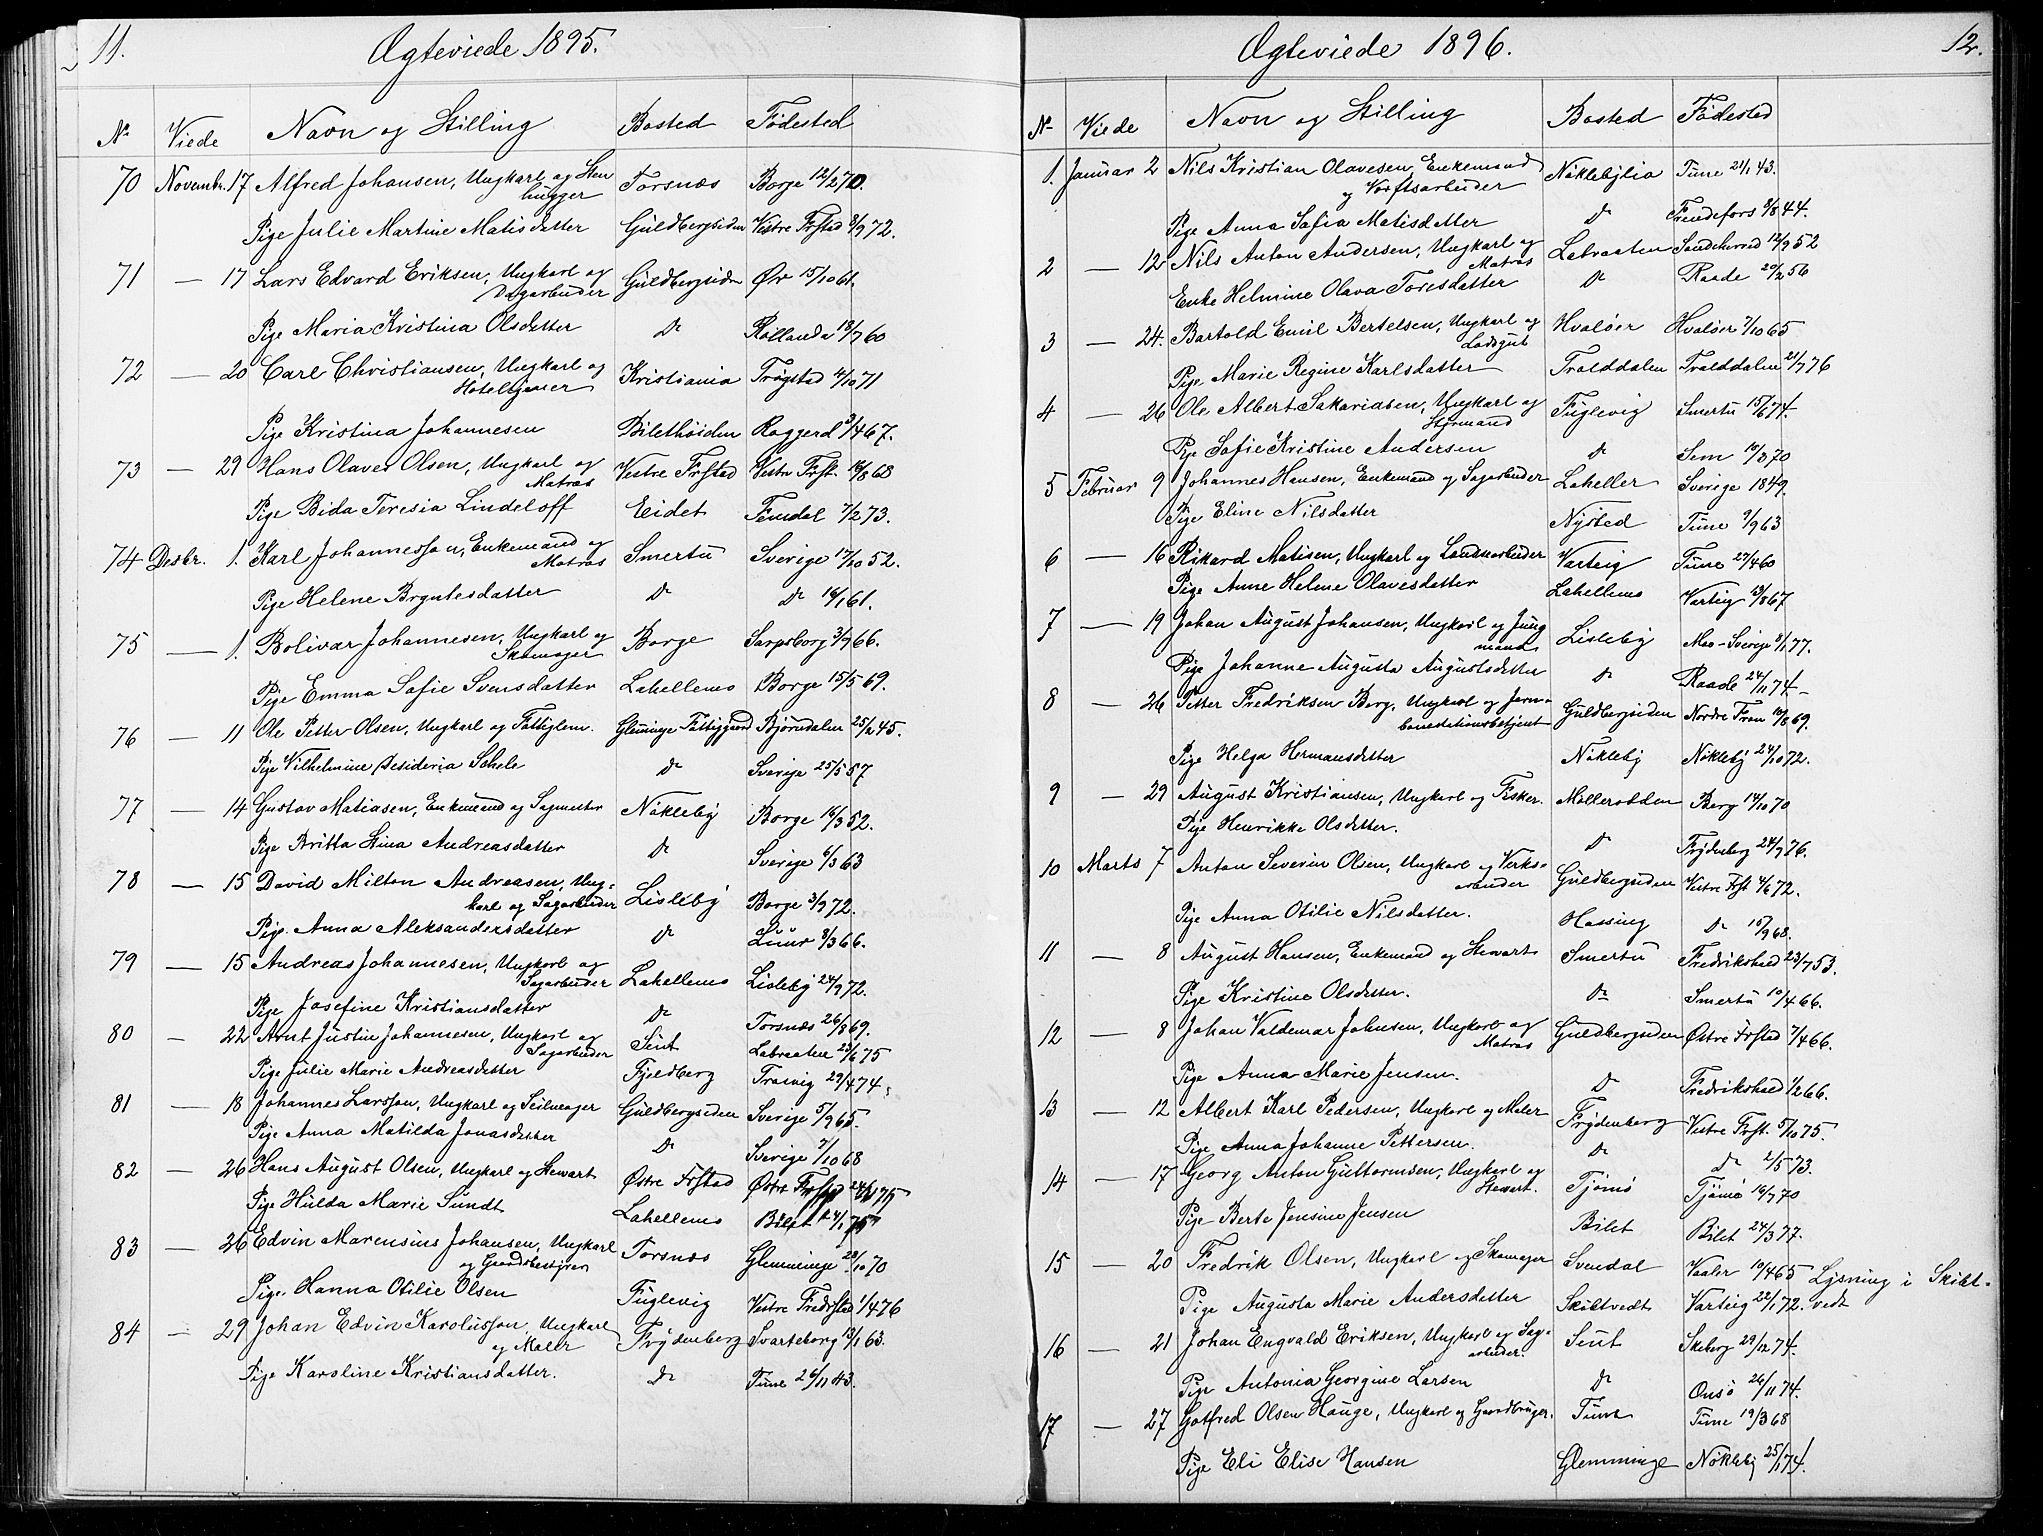 11.
Ægteviede 1895.
№ Viede Navn og Stilling Bosted Fødested
70 Novembr. 17 Alfred Johansen, Ungkarl og Sten Torsnæs Borge 12/2 70.
hugger
Pige Julie Martine Matisdatter Guldbergsiden Vestre Frstad 8/9 72.
71 — 17 Lars Edvard Eriksen, Ungkarl og Guldbergsiden Øv 15/10 61.
Dagarbeider
Pige Maria Kristina Olsdatter Do Rollanda 18/7 60
72 — 20 Carl Christiansen, Ungkarl og Kristiania Trøgstad 4/10 71
Hoteltjener
Pige Kristina Johannesen Bilethöiden Roggerd 3/4 67.
73 — 29 Hans Olaves Olsen, Ungkarl og Vestre Frstad Vestre Frst. 18/8 68
Matros
Pige Bida Teresia Lindeloff Eidet Femdal 7/2 73.
74 Desbr. 1. Karl Johannesson, Enkemand og Smertu Sverige 17/10 52.
Matros
Pige Helene Bryntesdatter Do Do 16/1 61.
75 — 1. Bolivar Johannesen, Ungkarl og Borge Sarpsborg 3/9 66.
Skomager
Pige Emma Sofie Svensdatter Lahellems Borge 15/5 69.
76 — 11 Ole Petter Olsen, Ungkarl og Fattiglem. Glemminge Fattiggaard Bjørndalen 25/2 45.
Pige Vilhelmine Desideria Schele Do Sverige 25/5 57
77 — 14 Gustav Matiasen, Enkemand og Sagmester Nökleby Borge 16/3 52.
Pige Britta Stina Andreasdatter Do Sverige 6/3 63
78 — 15 David Milton Andreasen, Ung- Lisleby Borge 3/9 72.
karl og Sagarbeider
Pige. Anna Aleksandersdatter Do Luur 8/3 66.
79 — 15 Andreas Johannesen, Ungkarl og Lahellems Lisleby 24/9 72.
Sagarbeider
Pige Josefine Kristiansdatter Do Torsnæs 26/8 69.
80 — 22 Arnt Justin Johannesen, Ungkarl og Seut Labraaten 23/6 75
Sagarbeider
Pige Julie Marie Andreasdatter Fjeldberg Trosvig 29/4 74.
81 — 18 Johannes Larsson, Ungkarl og Seilmager Guldbergsiden Sverige 5/9 65.
Pige Anna Matilda Jonasdatter Do Sverige 7/10 68
82 — 26 Hans August Olsen, Ungkarl og Stewart Østre Frstad Østre Frstad
Pige Hulda Marie Sundt Lahellems Bilet
83 — 26 Edvin Marensius Johansen, Ungkarl Torsnæs Glemminge 29/10 70
og Gaardsbestyrer
Pige. Hanna Otilie Olsen Fuglevig Vestre Fredrstad 1/4 76
84 — 29 Johan Edvin Karolusson, Ungkarl Frydenberg Svarteborg 13/1 63.
og Maler
Pige Karoline Kristiansdatter. Do Tune 26/11 43.
Ægteviede 1896.
12.
№ Viede Navn og Stilling Bosted Fødested
1. Januar 2 Nils Kristian Olavesen, Enkemand Nöklebylia Tune 21/1 43.
og Værftsarbeider
Pige Anna Sofia Matisdatter Do Trendefors 9/8 44.
2 — 12 Nils Anton Andersen, Ungkarl og Labraaten Sandeherred 12/9 52
Matros
Enke Helmine Olava Toresdatter Do Raade 20/2 56
3 — 24. Bartold Emil Bertelsen, Ungkarl og Hvaløer Hvaløer 7/10 65
Lodsgut
Pige Marie Regine Karlsdatter Tralddalen Tralddalen 21/7 76
4 — 26 Ole Albert Sakariasen, Ungkarl og Fuglevig Smertu 15/6 74.
Styrmand
Pige Sofie Kristine Andersen Do Sem 10/3 70
5 Februar 9 Johannes Hansen, Enkemand og Sagarbeider Laheller Sverige 1849.
Pige Eline Nilsdatter Nysted Tune 9/9 63
6 — 16 Rikard Matisen, Ungkarl og Landarbeider Varteig Tune 27/4 60
Pige Anne Helene Olavesdatter Lahellems Varteig 13/8 67
7 — 19 Johan August Johansen, Ungkarl og Jung Lisleby Mo-Sverige 8/1 77.
mand
Pige Johanne Augusta Augustsdatter Do Raade 24/11 74.
8 — 26 Petter Fredriksen Berg, Ungkarl og Jern- Guldbergsiden Nordre Fron 18/8 69.
banestationsbetjent
Pige Helga Hermansdatter Nökleby Nökleby 24/10 72.
9 — 29 August Kristiansen, Ungkarl og Fisker. Mollerodden Berg 14/10 70
Pige Henrikke Olsdatter. Do Frydenberg 24/9 76.
10 Marts 7 Anton Severin Olsen, Ungkarl og Verks- Guldbergsiden Vestre Frst 4/6 72.
arbeider
Pige Anna Otilie Nilsdatter. Hassing Do 15/9 68.
11 — 8 August Hansen, Enkemand og Stewart Smertu Fredrikshald 23/7 53.
Pige Kristine Olsdatter. Do Smertu 10/4 66.
12 — 8 Johan Valdemar Johnsen, Ungkarl og Guldbergsiden Østre Frstad 7/4 66.
Matros
Pige Anna Marie Jensen. Do Fredrikshald 1/2 66.
13 — 12 Albert Karl Pedersen, Ungkarl og Maler Frydenberg Vestre Frst. 5/10 75.
Pige Anna Johanne Pettersen. Do Do 2/5 73.
14 — 17 Georg Anton Guttormsen, Ungkarl og Tjømø Tjømø 16/7 70
Stewart.
Pige Berte Jensine Jensen Bilet Bilet 24/3 77.
15 — 20 Fredrik Olsen, Ungkarl og Skomager Svendal Vaaler 10/4 65 Lysning i Skibt-
Pige Augusta Marie Andersdatter Skibtvedt Varteig 22/1 72. vedt
16 — 21 Johan Engvald Eriksen, Ungkarl og Sag- Seut Skeberg 29/12 74.
arbeider.
Pige Antonia Georgine Larsen Do Onsø 26/11 74.
17 — 27 Gotfred Olsen Hauge, Ungkarl og Gaardbruger. Tune Tune 19/3 68
Pige Eli Elise Hansen Glemminge Nökleby 25/1 74.